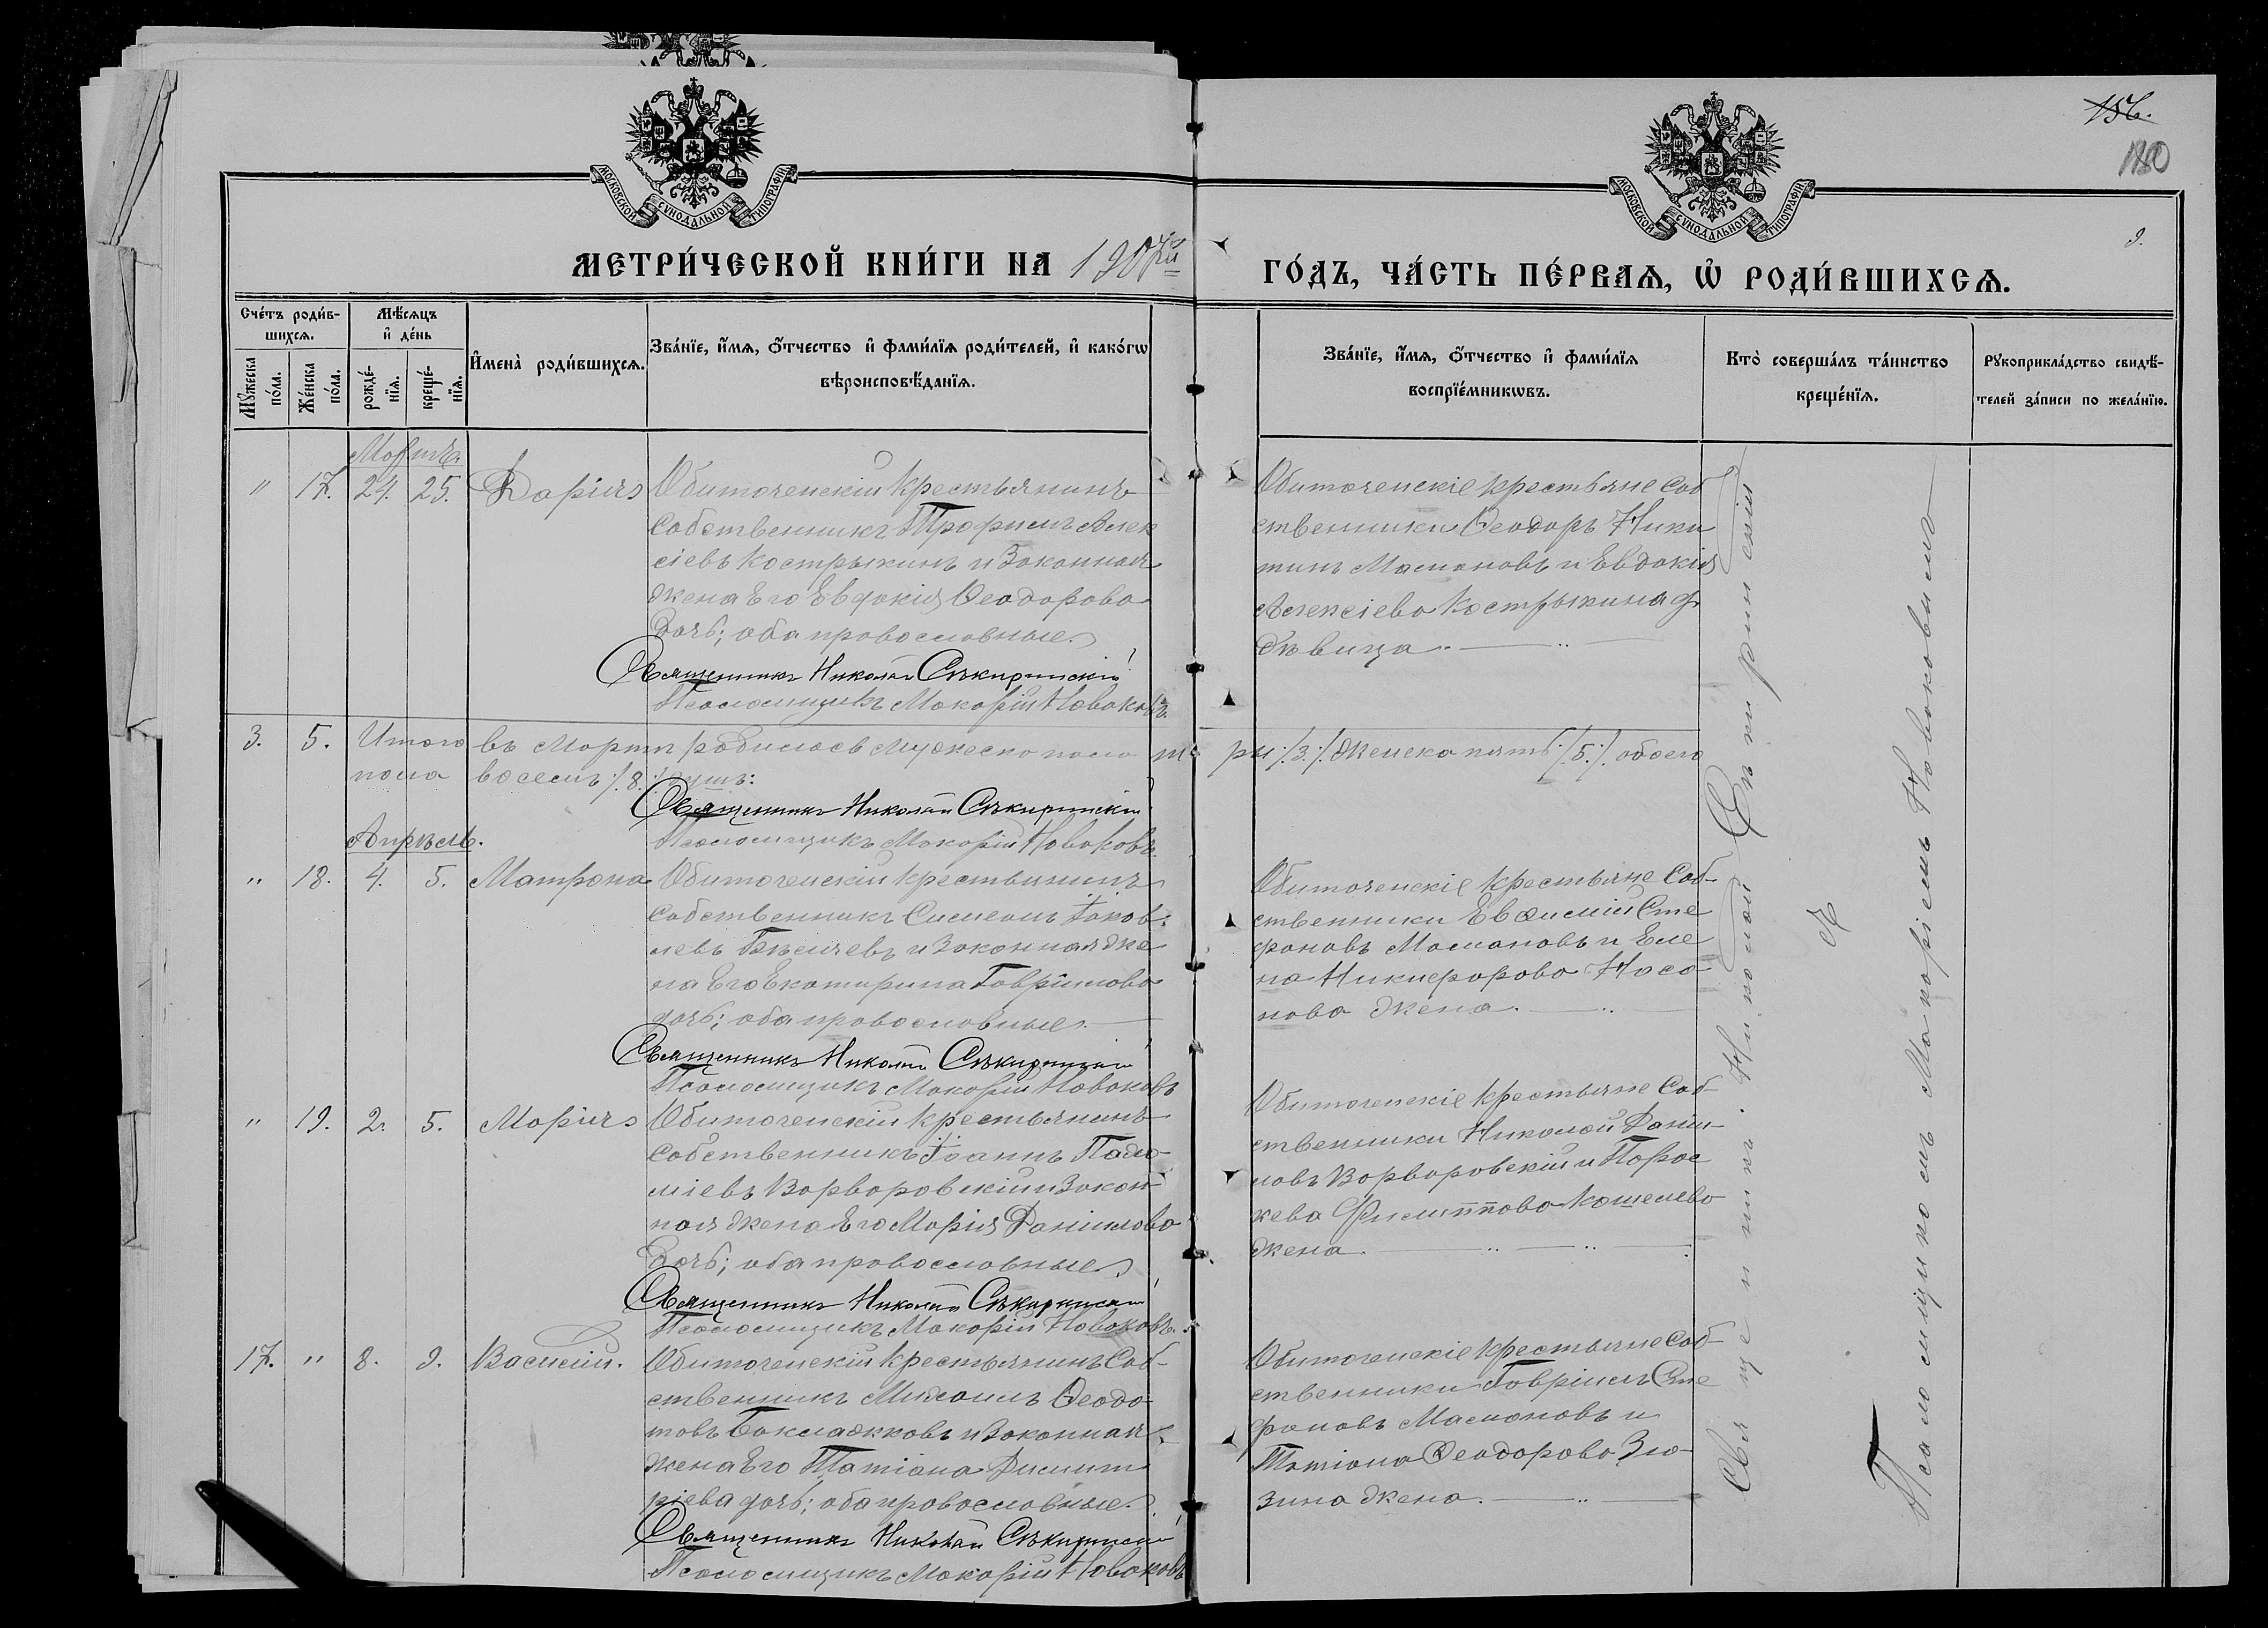 156.
180
9.
МОСКОВСКОЙ СѴНОДАЛЬНОЙ ТИПОГРАФІИ
МОСКОВСКОЙ СѴНОДАЛЬНОЙ ТИПОГРАФІИ
МЕТРИ́ЧЕСКОЙ КНИ́ГИ НА 1907й
ГО́ДЪ, ЧА́СТЬ ПЕ́РВАѦ, Ѡ҆ РОДИ́ВШИХСѦ.
Сче́тъ роди́в-
шихсѧ.
Мꙋ́жеска по́ла.
Же́нска по́ла.
Мѣ́сѧцъ
и҆ де́нь
рожде́-
нїѧ.
креще́-
нїѧ.
И҆мена̀ роди́вшихсѧ.
Зва́нїе, и҆́мѧ, ѻ҆́тчество и҆ фами́лїѧ роди́телей, и҆ како́гѡ
вѣроисповѣ́данїѧ.
Зва́нїе, и҆́мѧ, ѻ҆́тчество и҆ фами́лїѧ
воспрїе́мникѡвъ.
Кто̀ соверша́лъ та́инство
креще́нїѧ.
Рꙋкоприкла́дство свидѣ́-
телей за́писи по жела́нїю.
Мартъ
" 17. 24. 25. Дарія
Обиточенскій крестьянинъ
собственникъ Трофимъ Алек
сіевъ Кострыкинъ и законная
жена его Евдокія Ѳеодорова
дочь; оба православные.
Священникъ Николай Сѣкиринскій
Псаломщикъ Макарій Новаковъ
Обиточенскіе крестьяне соб
ственники Ѳеодоръ Ники
тинъ Мамоновъ и Евдокія
Алексіева Кострыкина
дѣвица.
3. 5. Итого въ Мартѣ родилось мужеска пола три /:3:/ женска пять /:5:/ обоего
пола восемь /:8:/ душъ:
Священникъ Николай Сѣкиринскій
Псаломщикъ Макарій Новаковъ.
Апрѣль.
" 18. 4. 5. Матрона
Обиточенскій крестьянинъ
собственникъ Симеонъ Іаков-
левъ Бѣляевъ и законная же
на его Екатирина Гавріилова
дочь; оба православные.
Священникъ Николай Сѣкиринскій
Псаломщикъ Макарій Новаковъ
Обиточенскіе крестьяне соб-
ственники Евѳимій Сте
фановъ Мамоновъ и Еле
на Никифорова Насо
нова жена.
" 19. 2. 5. Марія
Обиточенскій крестьянинъ
собственникъ Іоаннъ
міевъ Варваровскій и закон
ная жена его Марія Даніилова
дочь; оба православные
Священникъ Николай Сѣкиринскій
Псаломщикъ Макарій Новаковъ.
Обиточенскіе крестьяне соб-
ственники Николай Даніи-
ловъ Варваровскій и Парас
кева Филиппова Кошелева
жена.
17. " 8. 9. Василій.
Обиточенскій крестьянинъ соб-
ственникъ Михаилъ Ѳеодо-
товъ Баклажковъ и законная
жена его Татіана Димит
ріева дочь; оба православные.
Священникъ Николай Сѣкиринскій
Псаломщикъ Макарій Новаковъ
Обиточенскіе крестьяне соб-
ственники Гавріилъ Сте
фановъ Мамоновъ и
Татіана Ѳеодорова Зю-
зина жена.
Священникъ Николай Сѣкиринскій
съ
Псаломщикомъ Макаріемъ Новаковымъ